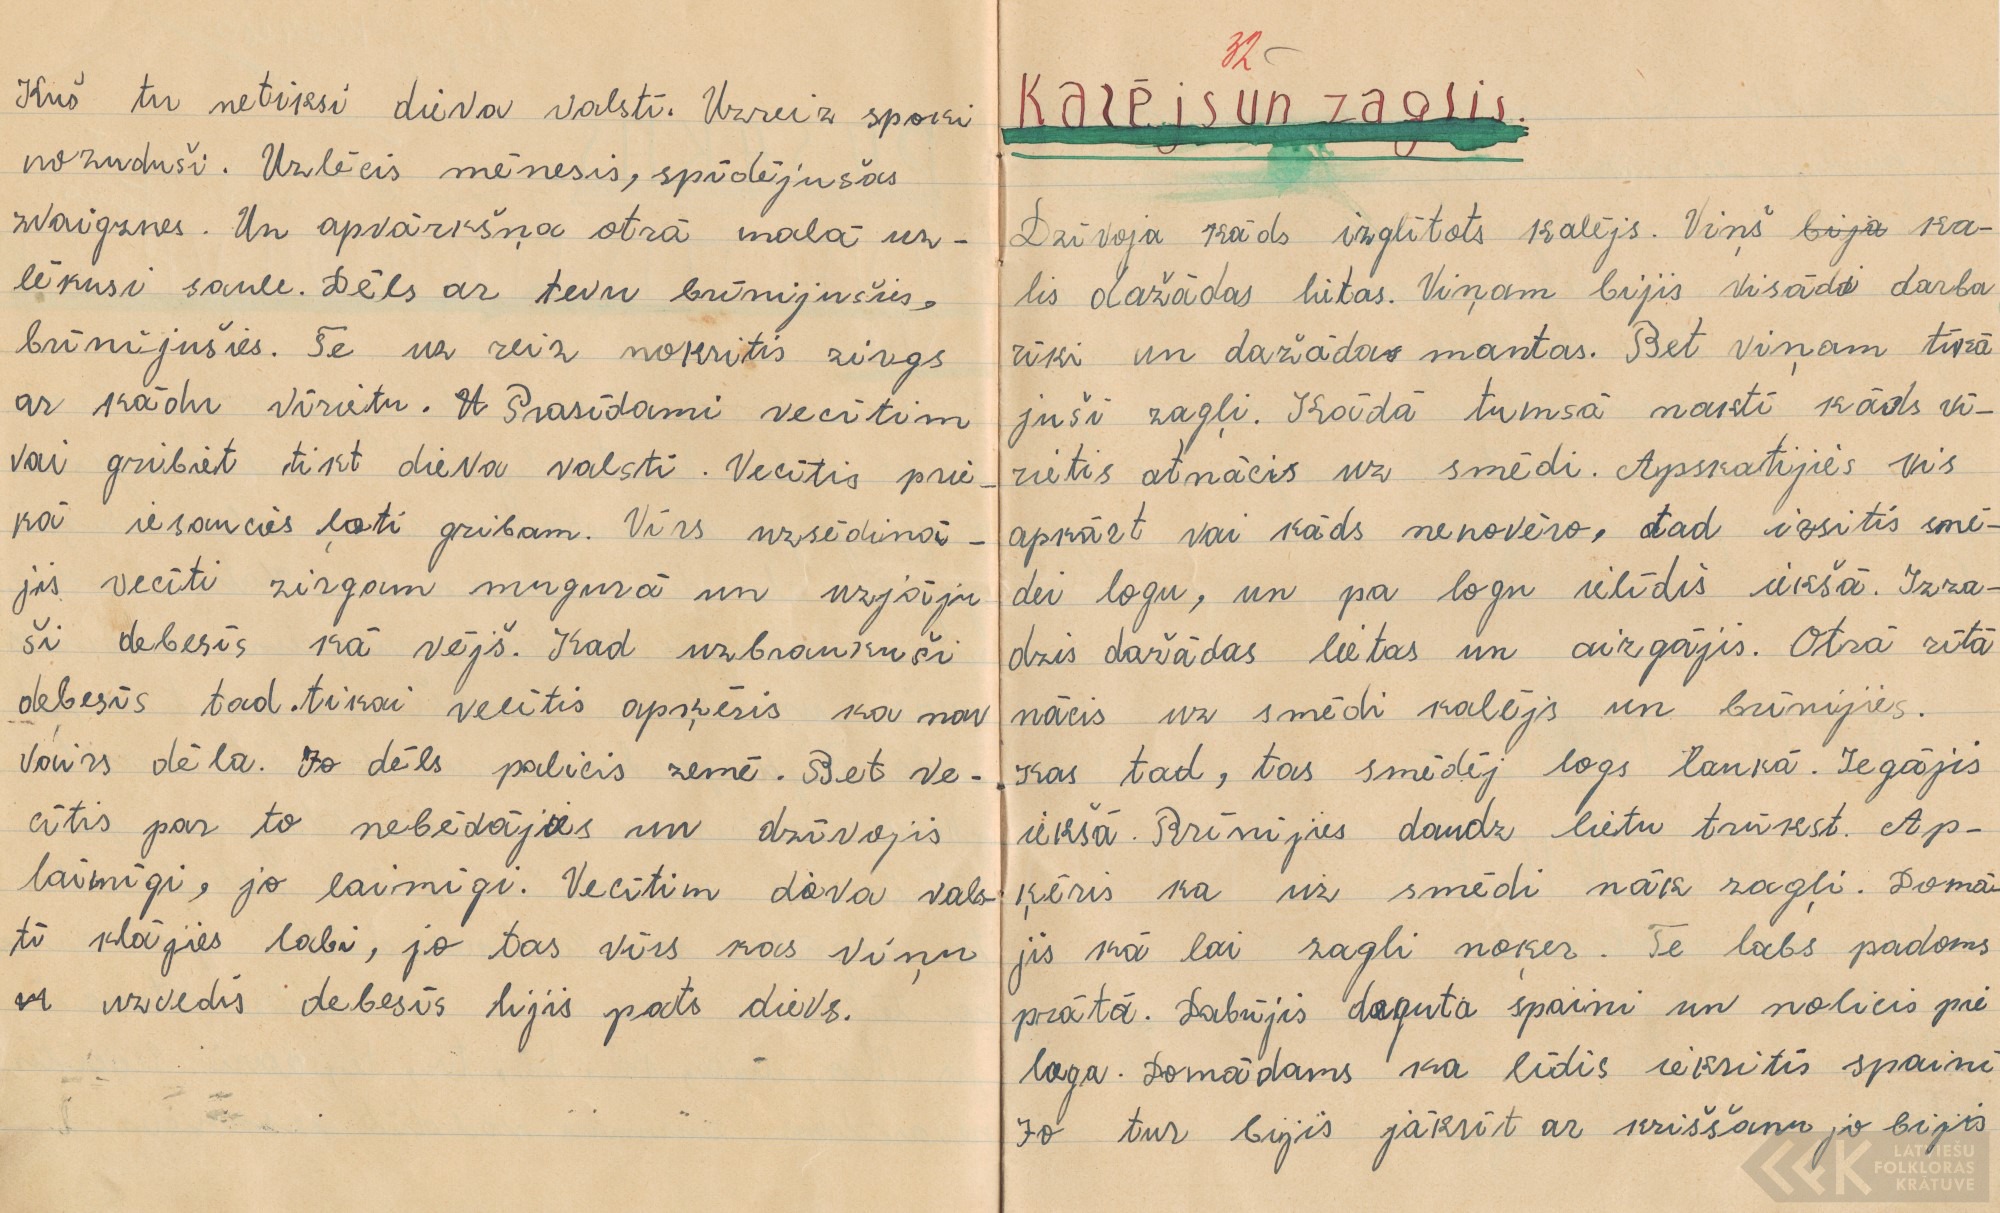 Kuš tu netiksi dieva valstī. Uzreiz spoki
nozuduši. Uzlēcis mēnesis, spīdējušas
zvaigznes. Un apvārkšņa otrā malā uz-
lēkusi saule. Dēls ar tevu brīnijušies,
brīnījušies. Te uz reiz nokritis zirgs
ar kādu vīrietu. Prasīdami vecītim
vai gribiet tikt dieva valstī. Vecītis prie-
kā iesaucies ļoti gribam. Vīrs uzsēdinā-
jis vecīti zirgam mugurā un uzjāju
ši debesīs kā vējš. Kad uzbraukuši
debesīs tad tikai vecītis apķēris ka nav
vairs dēla. Jo dēls palicis zemē. Bet ve-
cītis par to nebēdājies un dzīvojis
laimīgi, jo laimīgi. Vecītim dieva vals-
tī klājies labi, jo tas vīrs kas viņu
uzvedis debesīs bijis pats dievs.
32
Kalējs un zaglis.
Dzīvoja kāds izglītots kalējs. Viņš bija ka-
lis dažādas lietas. Viņam bijis visādi darba
rīki un dažādas mantas. Bet viņam tīkā
juši zagļi. Kādā tumsā naktī kāds vī-
rietis atnācis uz smēdi. Apskatijies vis
apkārt vai kāds nenovēro, tad izsitis smē-
dei logu, un pa logu ielīdis iekšā. Izza-
dzis dažādas lietas un aizgājis. Otrā rītā
nācis uz smēdi kalējs un brīnijies.
Kas tad, tas smēdēj logs laukā. Iegājis
iekšā. Brīnījies daudz lietu trūkst. Ap-
ķēris ka uz smēdi nāk zagļi. Domā-
jis kā lai zagli noķer. Te labs padoms
prātā. Dabūjis daguta spaini un nolicis pie
loga. Domādams ka līdis iekritīs spainī
Jo tur bijis jākrīt ar kriššanu jo bijis
LATVIEŠU
FOLKLORAS
KRĀTUVE